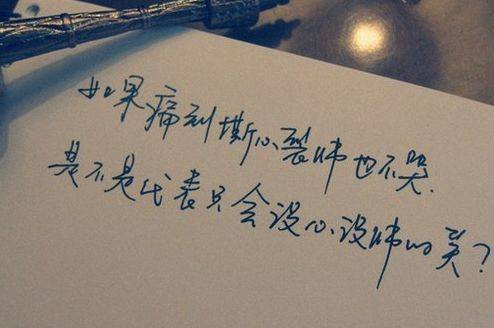 如果痛到撕心裂肺也不哭.
是不是代表只会没心没肺的笑？